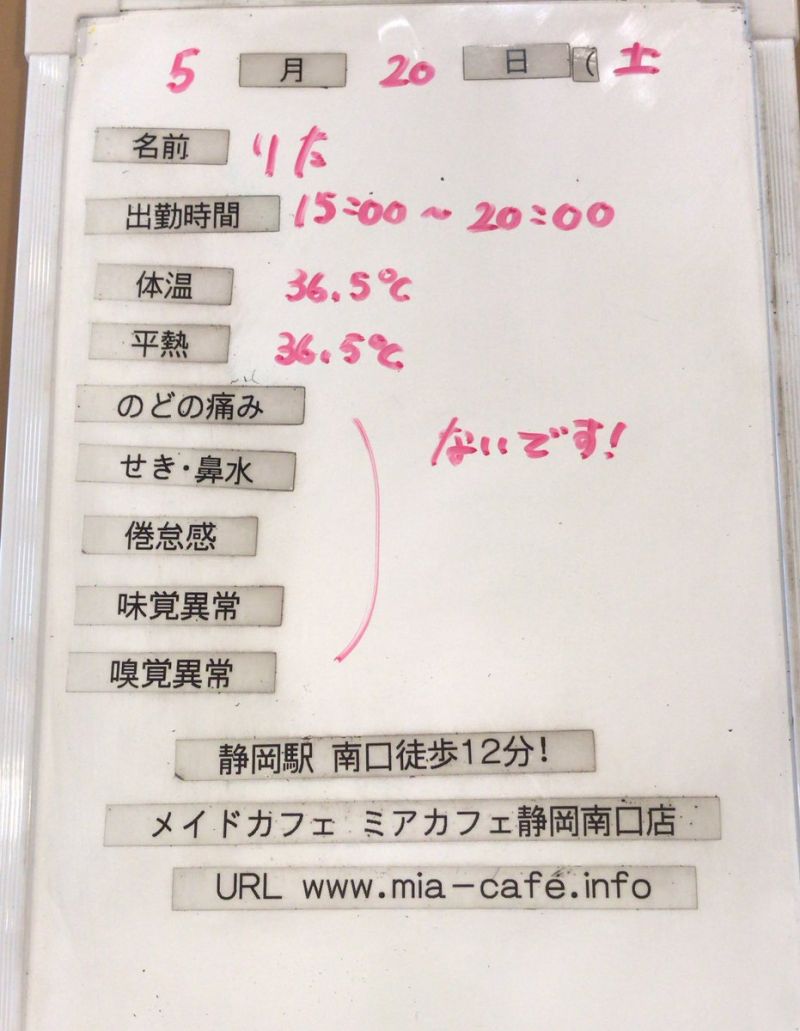 5月20日(土
名前 りた
出勤時間 15:00～20:00
体温 36.5℃
平熱 36.5℃
のどの痛み
せき・鼻水
ないです!
倦怠感
味覚異常
嗅覚異常
静岡駅 南口徒歩12分!
メイドカフェ ミアカフェ静岡南口店
URL www.mia-cafe.info